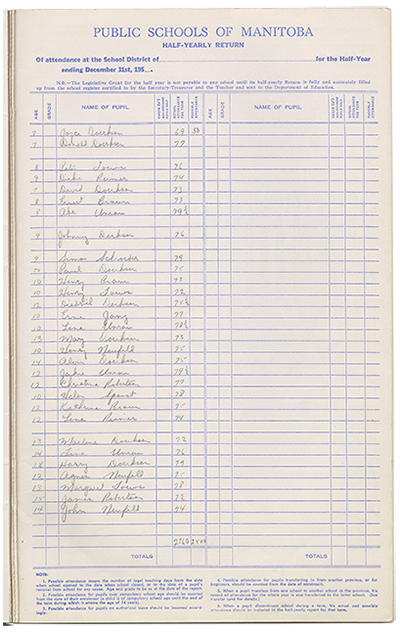 PUBLIC SCHOOLS OF MANITOBA
HALF-YEARLY RETURN
Of attendance at the School District of for the Half-Year
ending December 31st, 195
N.B.—The Legislative Grant for the half year is not payable to any school until its half-yearly Return is fully and accurately filled
up from the school register certified to by the Secretary-Treasurer and the Teacher and sent to the Department of Education.
AGE GRADE NAME OF PUPIL AGE GRADE NAME OF PUPIL
7 Joyce Doerksen 69
7 Donald Doerksen 77
8 Pete Toews 76
9 Dick Reimer 74
7 David Doerksen 73
8 Ernest Braun 73
8 Abe Unrau 79½
9 Johnny Derksen 76
9 79
Paul Doerksen
10 Henry Braun 73
10 Henry Toews 72
12 Derksen
10 Erna 77
10 Lena Unrau 78½
13 Mary Doerksen 73
10 Henry Neufeld
14 Alvin Doerksen
12 Jake Unrau 79½
12 Christina Robertson 77
10 Helen 78
12 Kathrina Braun
12 Lena Reimer 74
13 Marlene Doerksen 72
14 Lena Unrau 76
13 Harry Doerksen 79
12 Agnes Neufeld
15 Margaret Toews 78
15 James Robertson 72
14 John Neufeld 74
TOTALS TOTALS
NOTE:
1. Possible attendance means the number of legal teaching days from the date
when school opened to the date when school closed, or to the date of a pupil's
removal from school for any cause. Age and grade to be as at the date of the report.
2. Possible attendance for pupils over compulsory school age should be counted
from the date of their enrolment
the term during which it attains the age of 14 years.
3. Possible attendance for pupils on authorized leave should be lessened accord-
ingly.
4. Possible attendance for pupils transferring in from another province, or for
beginners, should be counted from the date of enrolment.
5. When a pupil transfers from one school to another school in the province, his
record of attendance for the whole year is also transferred to the latter school. (See
transfer card for details.)
6. When a pupil discontinues school during a term, his actual and possible
attendance should be included in the half-yearly report for that term.